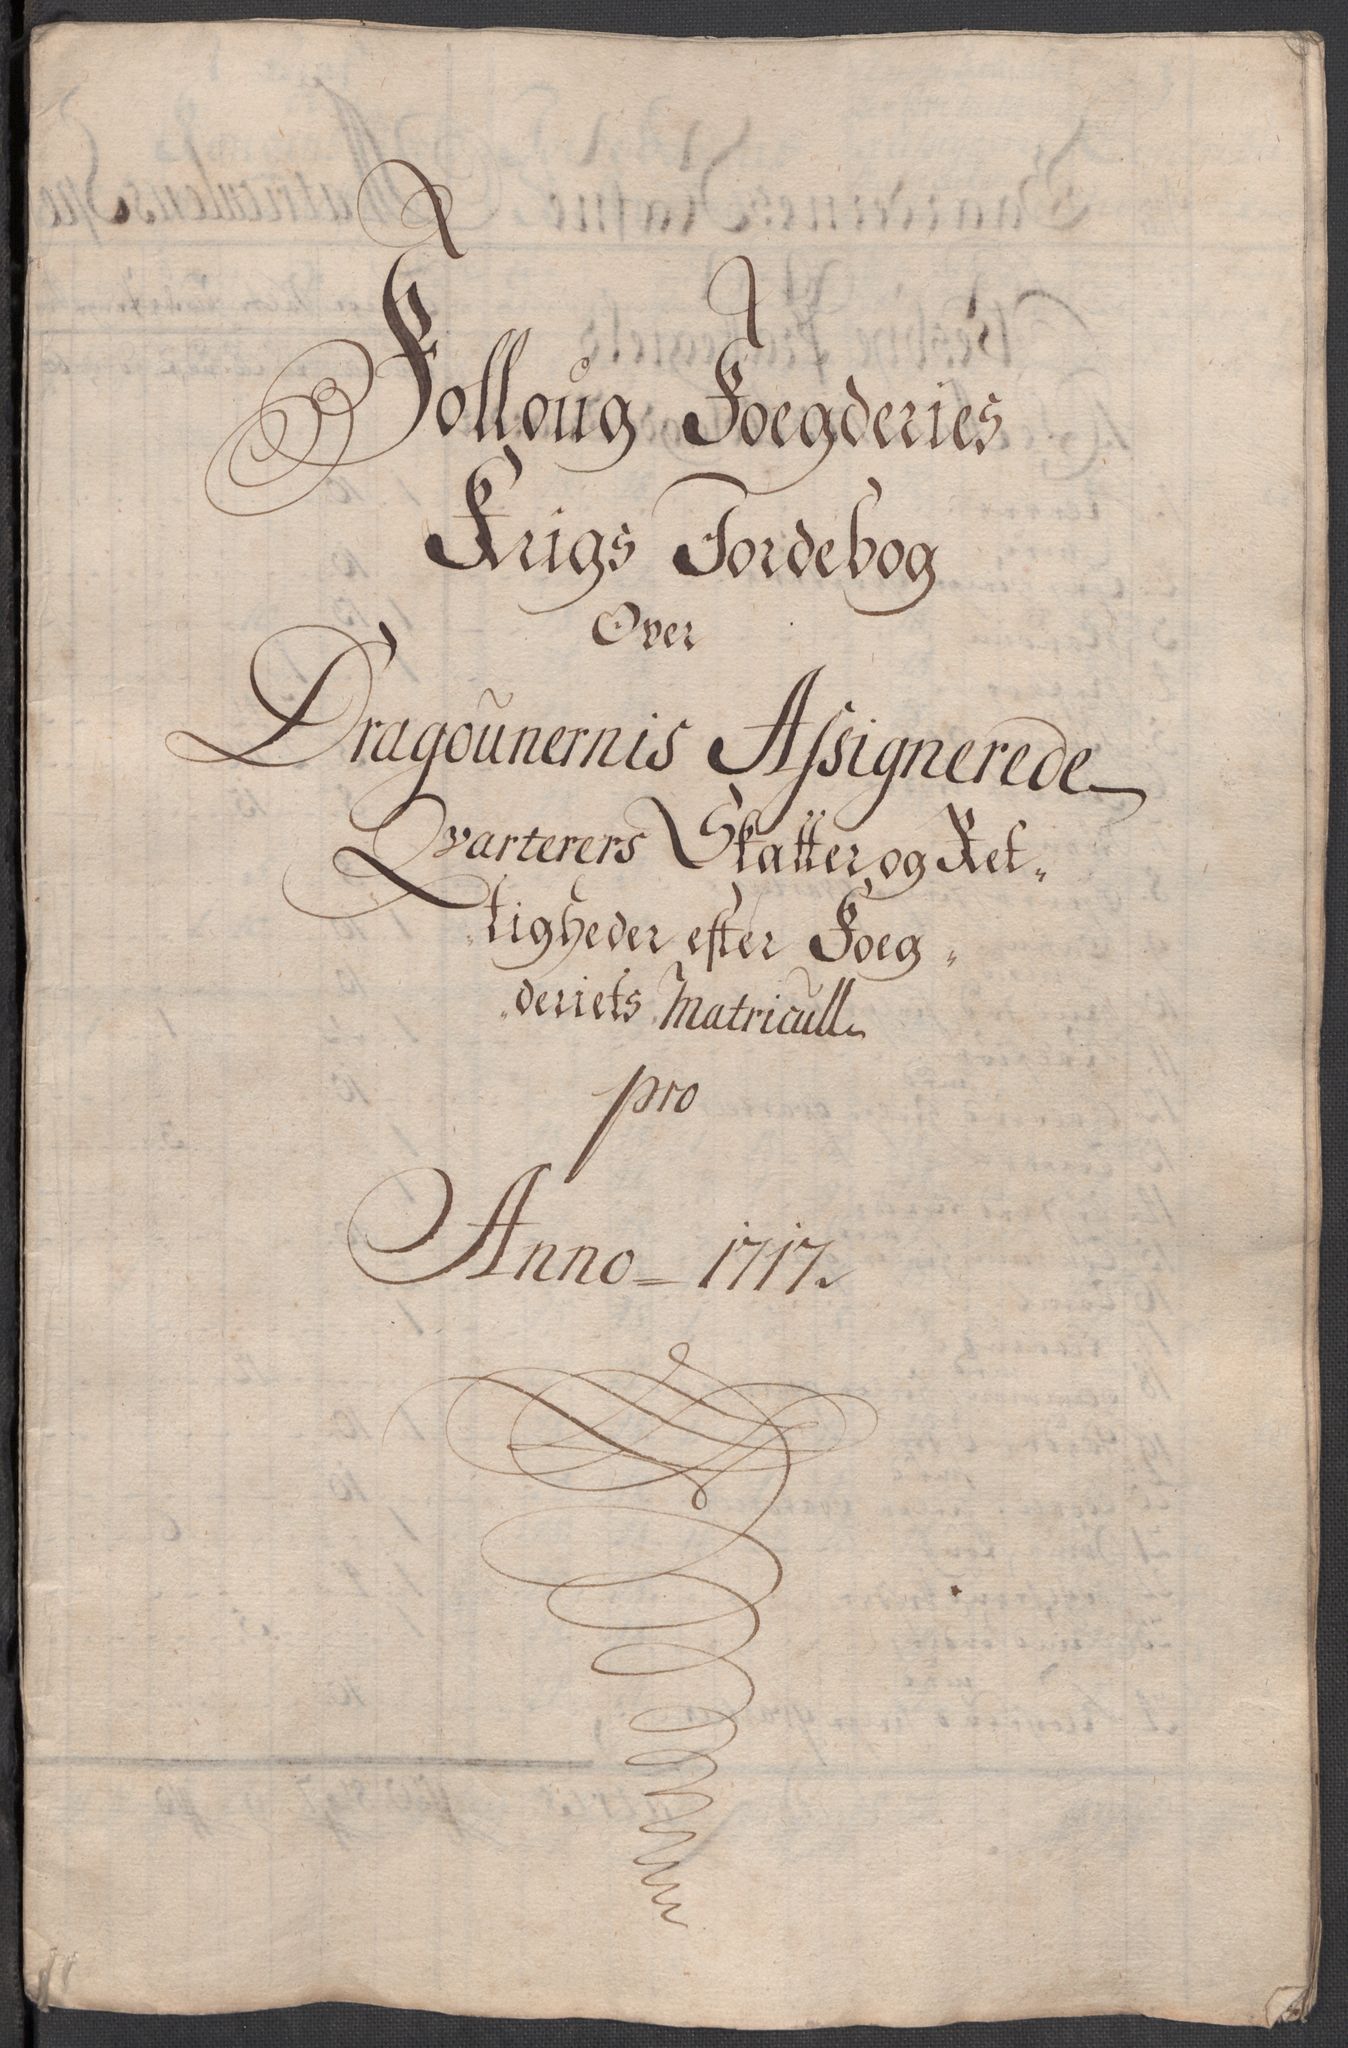 Folloug Foegderies
Krigs Jordebog
Over
Dragounernis Assignerede
Qvarterers Skatter og Ret„
„tigheder efter Foeg„
„deriets Matricull
pro
Anno = 1717.